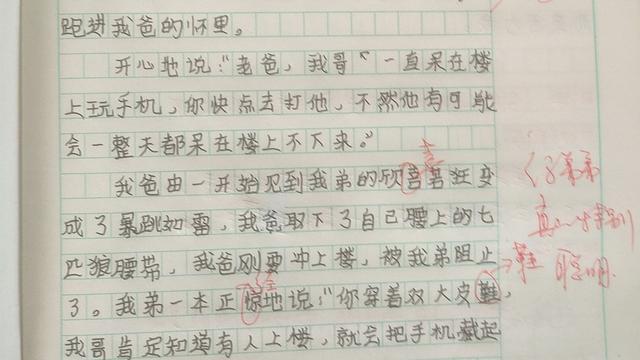 跑进我爸的怀里。
开心地说:“老爸,我哥“一直呆在楼
上玩手机,你快点去打他,不然他有可能
会一整天都呆在楼上不下来。”
喜
我爸由一开始见到我弟的欣喜若狂变
成了暴跳如雷,我爸取下了自己腰上的七
匹狼腰带,我爸刚要冲上楼,被我弟阻止
了。我弟一本正惊地说:“你穿着双大皮鞋,
我哥肯定知道有人上楼,就会把手机藏起
经
鞋
弟弟
真
聪明